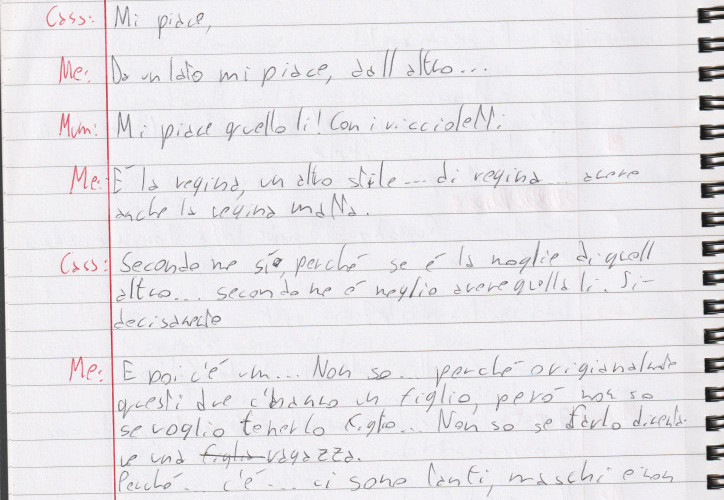 Cass: Mi piace,
Me: Da un lato mi piace, dall altro...
Mum: Mi piace quello li! Con i riccioletti.
Me: É la regina, un altro stile... di regina... avere
anche la regina matta.
Cass: Secondo me sì, perché se é la moglie di quell
altro... secondo me é meglio avere quella li. Si-
decisamente
Me: E poi c'é um... Non so... perché origianalmente
questi due c'hanno un figlio, peró non so
se voglio tenerlo figlio... Non so se farlo diventa-
re una figlia ragazza.
Perché... c'é... ci sono tanti, maschi e non